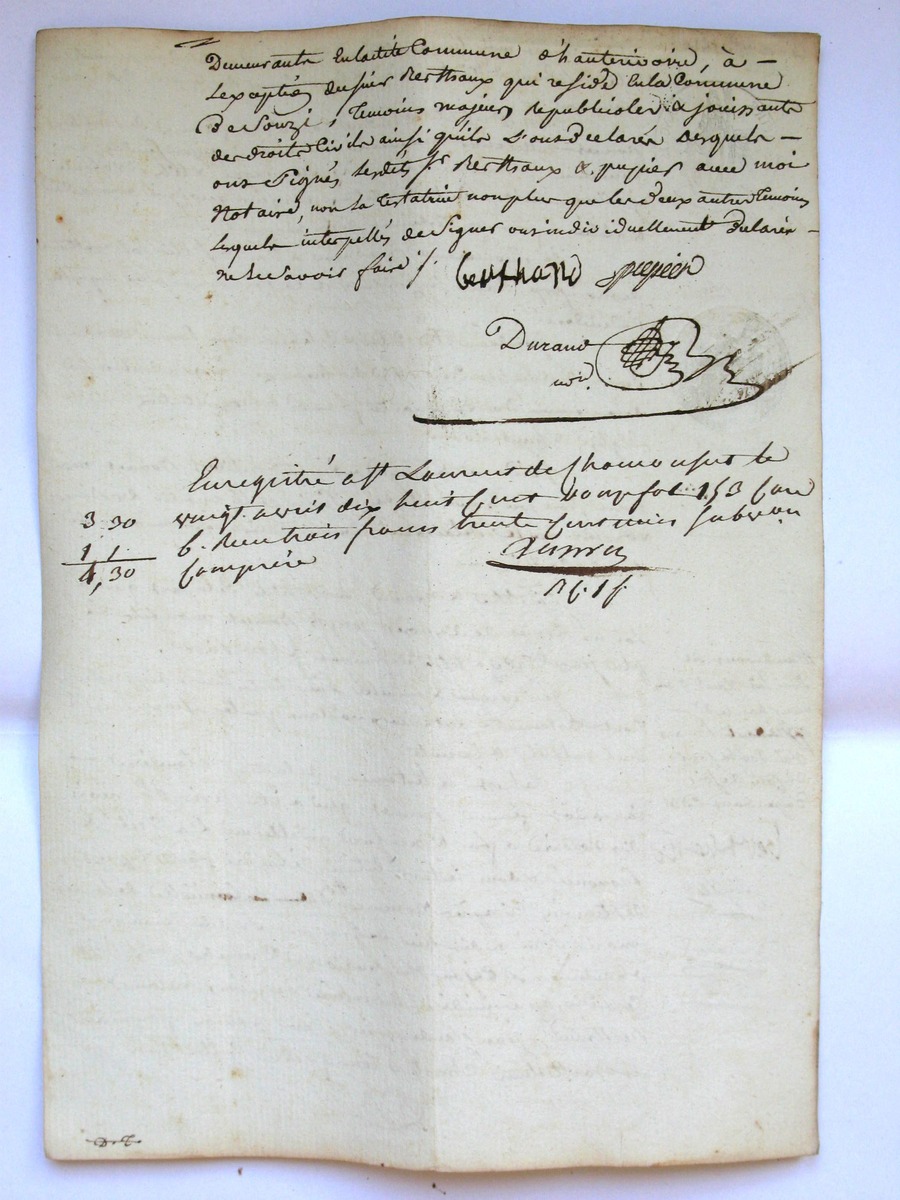 Demeurants En ladite Commune d'hauterivoire, à –
L'exception du sieur Berthaux qui reside En la Commune
De Souzi, Temoins majeurs republicoles & jouissants
des droits Civils ainsi qu'ils L'ons declarés Desquels –
ons Signés Lesdits Sr Berthaux & pupier avec moi
Notaire, non la testatrice non plus que les deux autres Temoins
Lesquels interpellés de Signer ons individuellement declarés –
ne Le savoir faire /.
pupier
Durand
not.
Enregistré a St Laurent de Chamousset le
vingt avril dix huit Cent fol 153
3,30
6. Reçu trois francs trente Centimes Subvon
1 1.
Comprise
4,30
D.T.